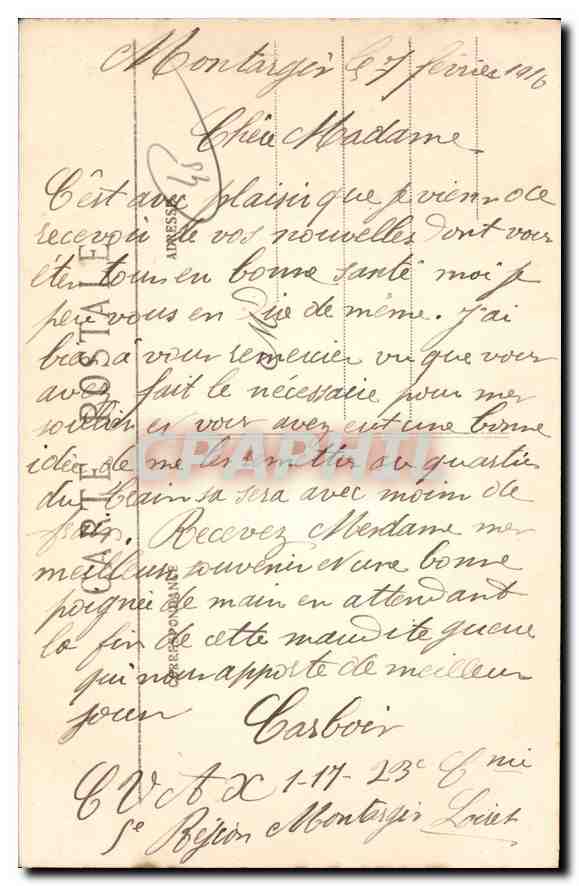 Montargis le 7 février 1916
Chère Madame
C'est avec plaisir que je viens de
recevoir de vos nouvelles dont vous
êtes tous en bonne santé moi je
peu vous en Dire de même. J'ai
bien à vous remercier vu que vous
avez fait le nécessaire pour mes
souliers et vous avez eut une bonne
idée de me les remettre au quartier
du train sa sera avec moin de
frais. Recevez Mesdame mes
meilleurs souvenir et une bonne
poignée de main en attendant
la fin de cette maudite guerre
qui nous apporte de meilleur
jour
Carboir
C V A X 1-17- 23e Cnie
5e Région Montargis Loiret
45
CARTE POSTALE
ADRESSE
CORRESPONDANCE
M
CPARAMA